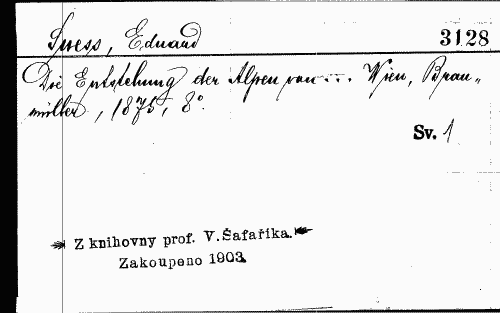 Suess, Eduard 3128
Die Entstehung der Alpen von ... Wien, Brau-
müller, 1875, 8°.
Sv. 1
Z knihovny prof. V. Šafaříka.
Zakoupeno 1903.